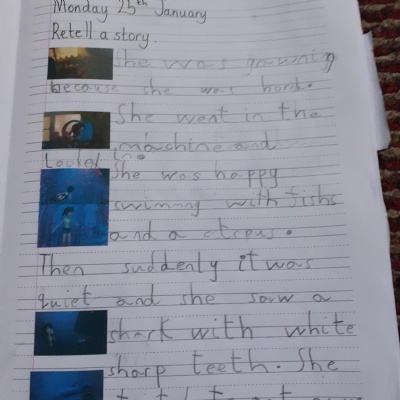 Monday 25th January
Retell a story.
She was gowning
because she was bord.
She went in the
machine and
Looket in.
She was happy
swimming with fishs
and a ctopus.
Then suddenly it was
quiet and she saw a
shark with white
sharp teeth. She